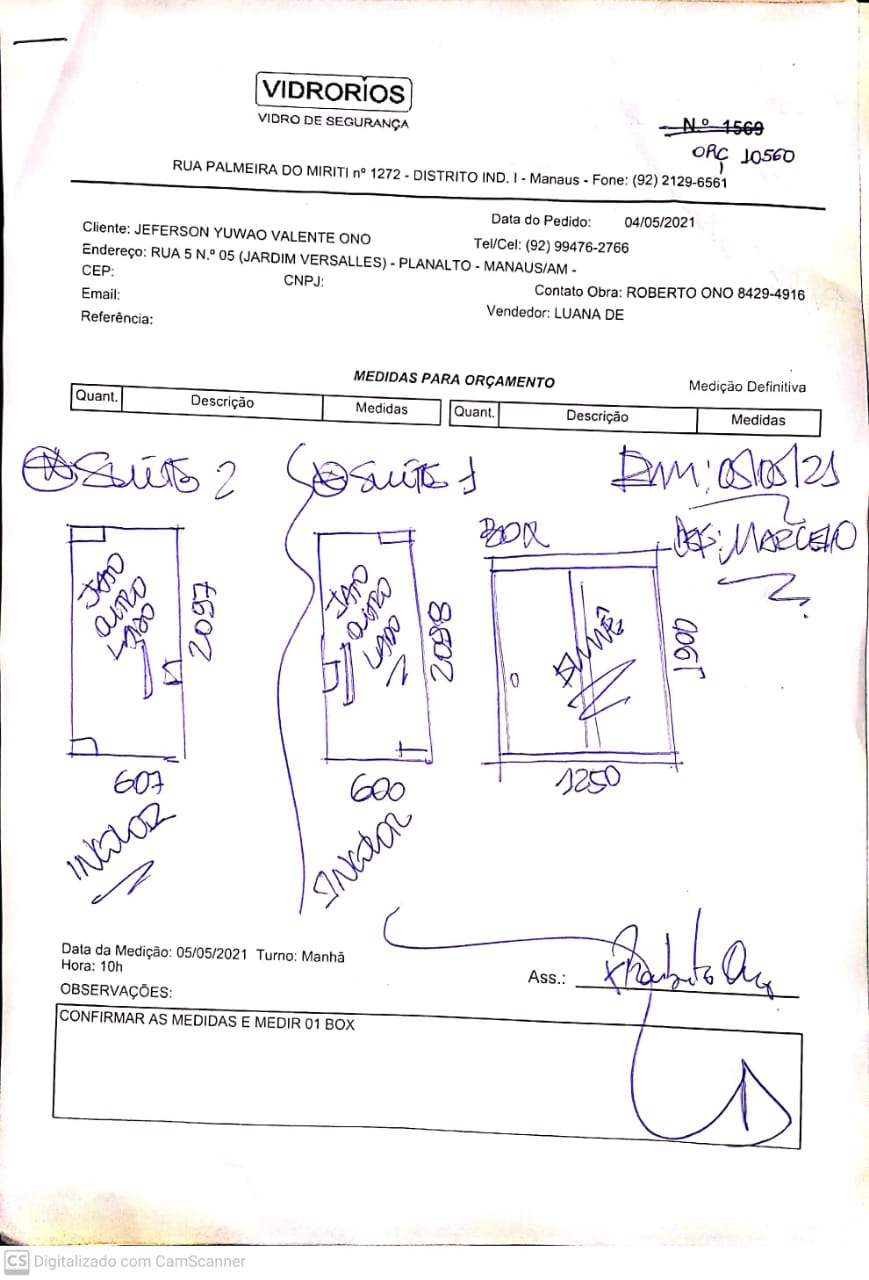 VIDRORÍOS
VIDRO DE SEGURANÇA
N.º 1569
ORÇ 10560
RUA PALMEIRA DO MIRITI nº 1272 - DISTRITO IND. I - Manaus - Fone: (92) 2129-6561
Data do Pedido: 04/05/2021
Cliente: JEFERSON YUWAO VALENTE ONO
Tel/Cel: (92) 99476-2766
Endereço: RUA 5 N.º 05 (JARDIM VERSALLES) - PLANALTO - MANAUS/AM -
CEP:
CNPJ:
Contato Obra: ROBERTO ONO 8429-4916
Email:
Vendedor: LUANA DE
Referência:
MEDIDAS PARA ORÇAMENTO
Medição Definitiva
Quant. Descrição Medidas Quant. Descrição Medidas
SUÍTE 2
SUÍTE 1
05/05/21
BOX
JATO
OUTRO
LADO
2097
JATO
OUTRO
LADO
2098
1900
607
600
1250
INCOLOR
INCOLOR
Data da Medição: 05/05/2021 Turno: Manhã
Hora: 10h
Ass.:
OBSERVAÇÕES:
CONFIRMAR AS MEDIDAS E MEDIR 01 BOX
CS Digitalizado com CamScanner